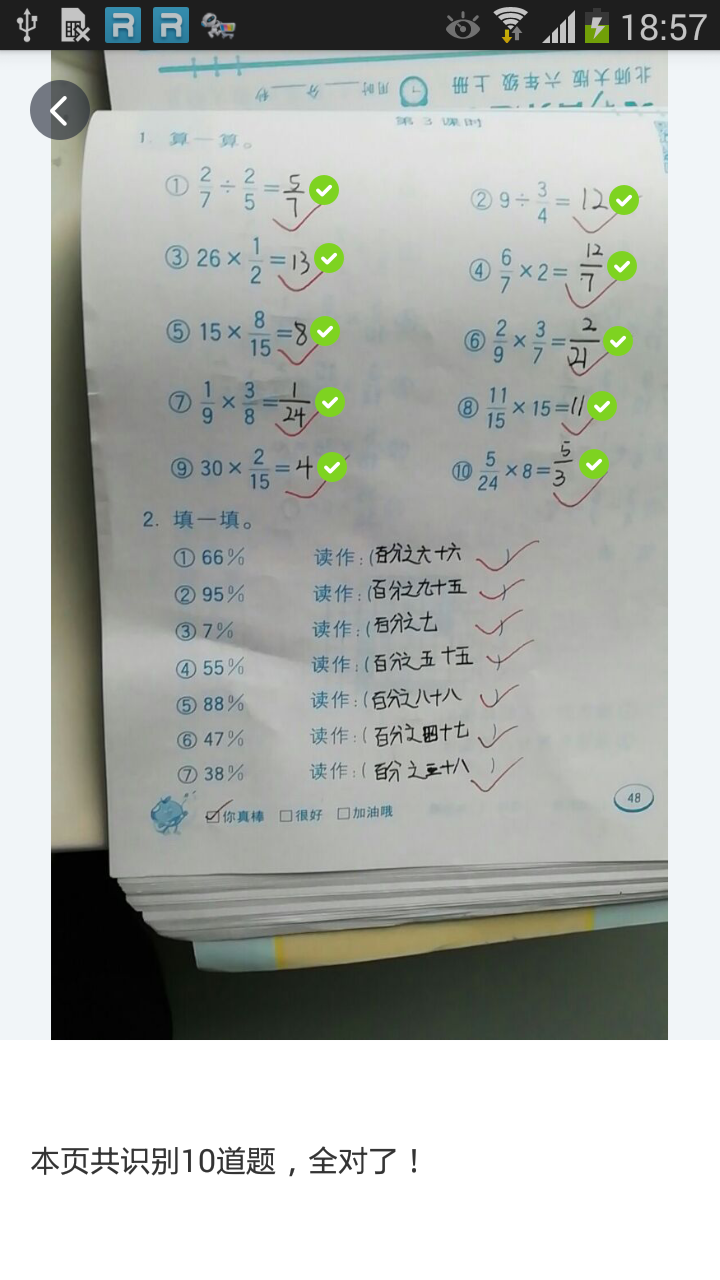 18:57
北师大版 六年级 上册
用时____分____秒
第 3 课时
1. 算一算。
① 2/7 ÷ 2/5 = 5/7
② 9 ÷ 3/4 = 12
③ 26 × 1/2 = 13
④ 6/7 × 2 = 12/7
⑤ 15 × 8/15 = 8
⑥ 2/9 × 3/7 = 2/21
⑦ 1/9 × 3/8 = 1/24
⑧ 11/15 × 15 = 11
⑨ 30 × 2/15 = 4
⑩ 5/24 × 8 = 5/3
2. 填一填。
① 66% 读作：(百分之六十六)
② 95% 读作：(百分之九十五)
③ 7% 读作：(百分之七)
④ 55% 读作：(百分之五十五)
⑤ 88% 读作：(百分之八十八)
⑥ 47% 读作：(百分之四十七)
⑦ 38% 读作：(百分之三十八)
☑你真棒 □很好 □加油哦
48
本页共识别10道题，全对了！